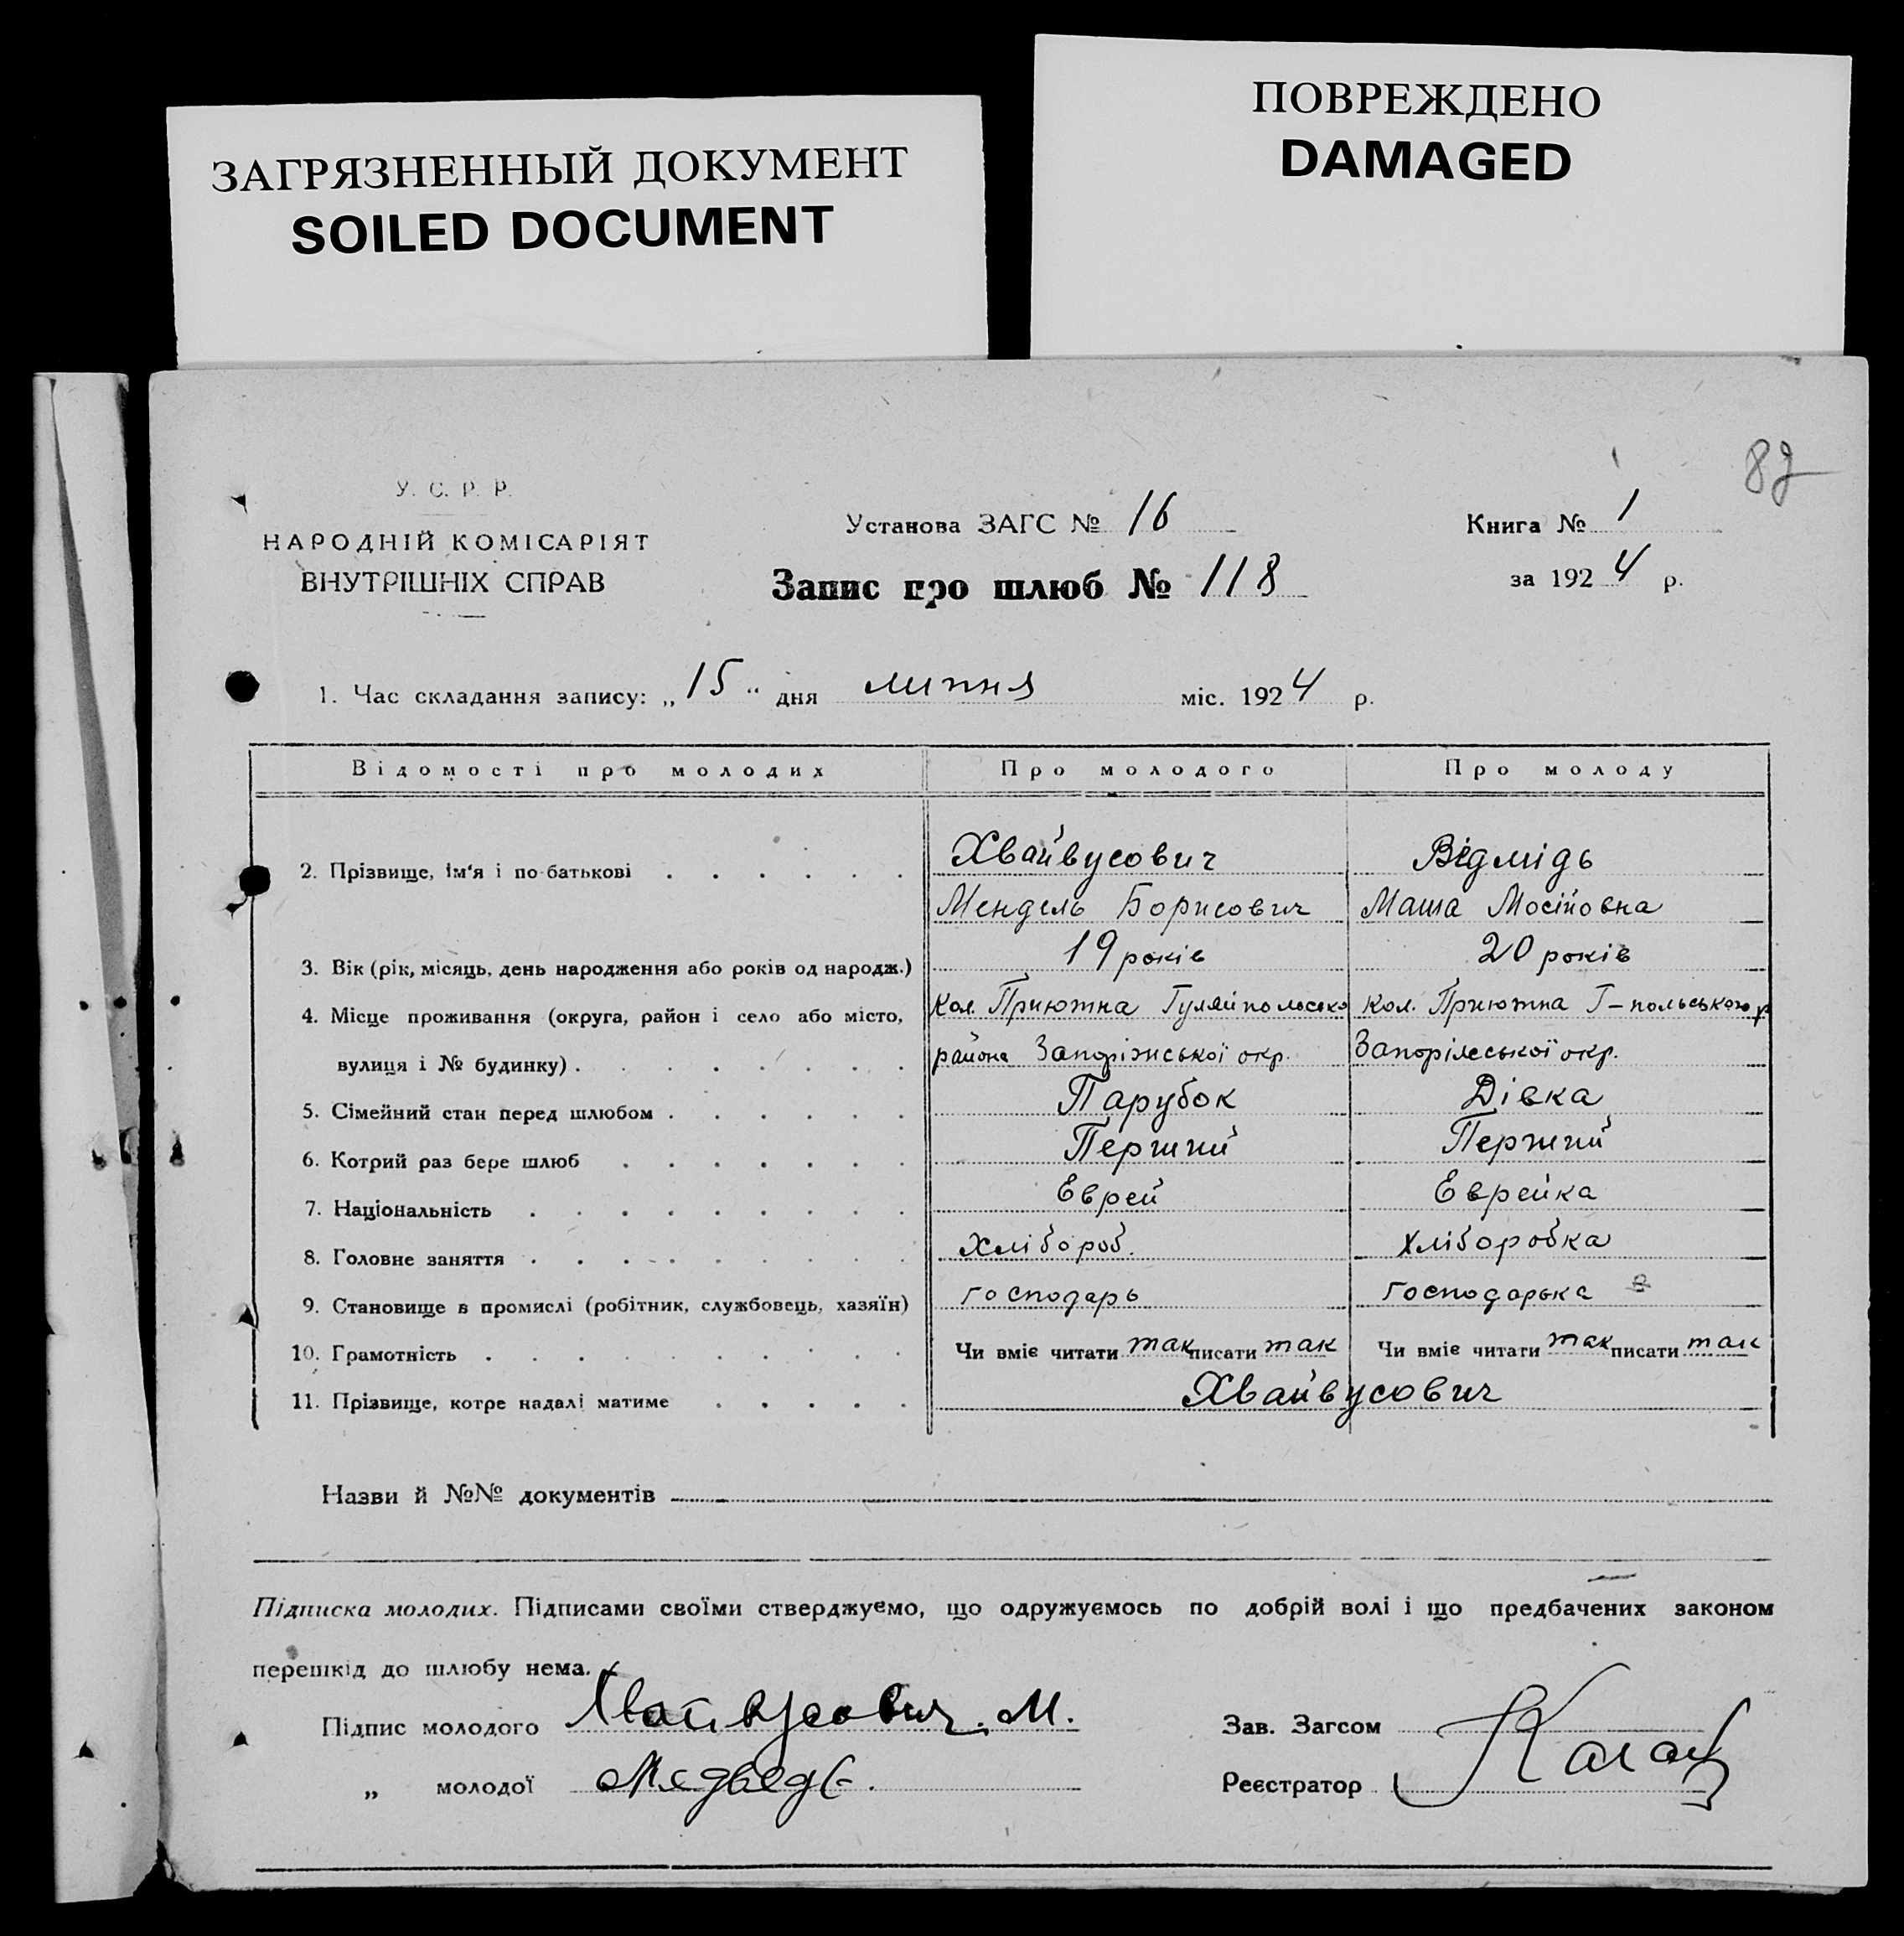 ЗАГРЯЗНЕННЫЙ ДОКУМЕНТ
SOILED DOCUMENT
ПОВРЕЖДЕНО
DAMAGED
У. С. Р. Р.
НАРОДНІЙ КОМІСАРІЯТ
ВНУТРІШНІХ СПРАВ
Установа ЗАГС № 16
Запис про шлюб № 118
Книга № 1
за 1924 р.
1. Час складання запису: „15“ дня липня міс. 1924 р.
Відомості про молодих Про молодого Про молоду
2. Прізвище, ім'я і по-батькові Хвайвусович Відмідь
Мендель Борисович Маша Мосійовна
3. Вік (рік, місяць, день народження або років од народж.) 19 років 20 років
4. Місце проживання (округа, район і село або місто, Кол. Приютна Гуляйпольсько Кол. Приютна Г–польського р
вулиця і № будинку) района Запоріжської окр. Запоріжської окр.
5. Сімейний стан перед шлюбом Парубок Дівка
6. Котрий раз бере шлюб Перший Перший
7. Національність Еврей Еврейка
8. Головне заняття Хлібороб. Хліборобка
9. Становище в промислі (робітник, службовець, хазяїн) господарь господарька
10. Грамотність Чи вміє читати так писати так Чи вміє читати так писати так
11. Прізвище, котре надалі матиме Хвайвусович
Назви й №№ документів
Підписка молодих. Підписами своїми стверджуємо, що одружуємось по добрій волі і що предбачених законом
перешкід до шлюбу нема.
Підпис молодого Хвайвусович. М.
„ молодої Медведь.
Зав. Загсом
Реєстратор